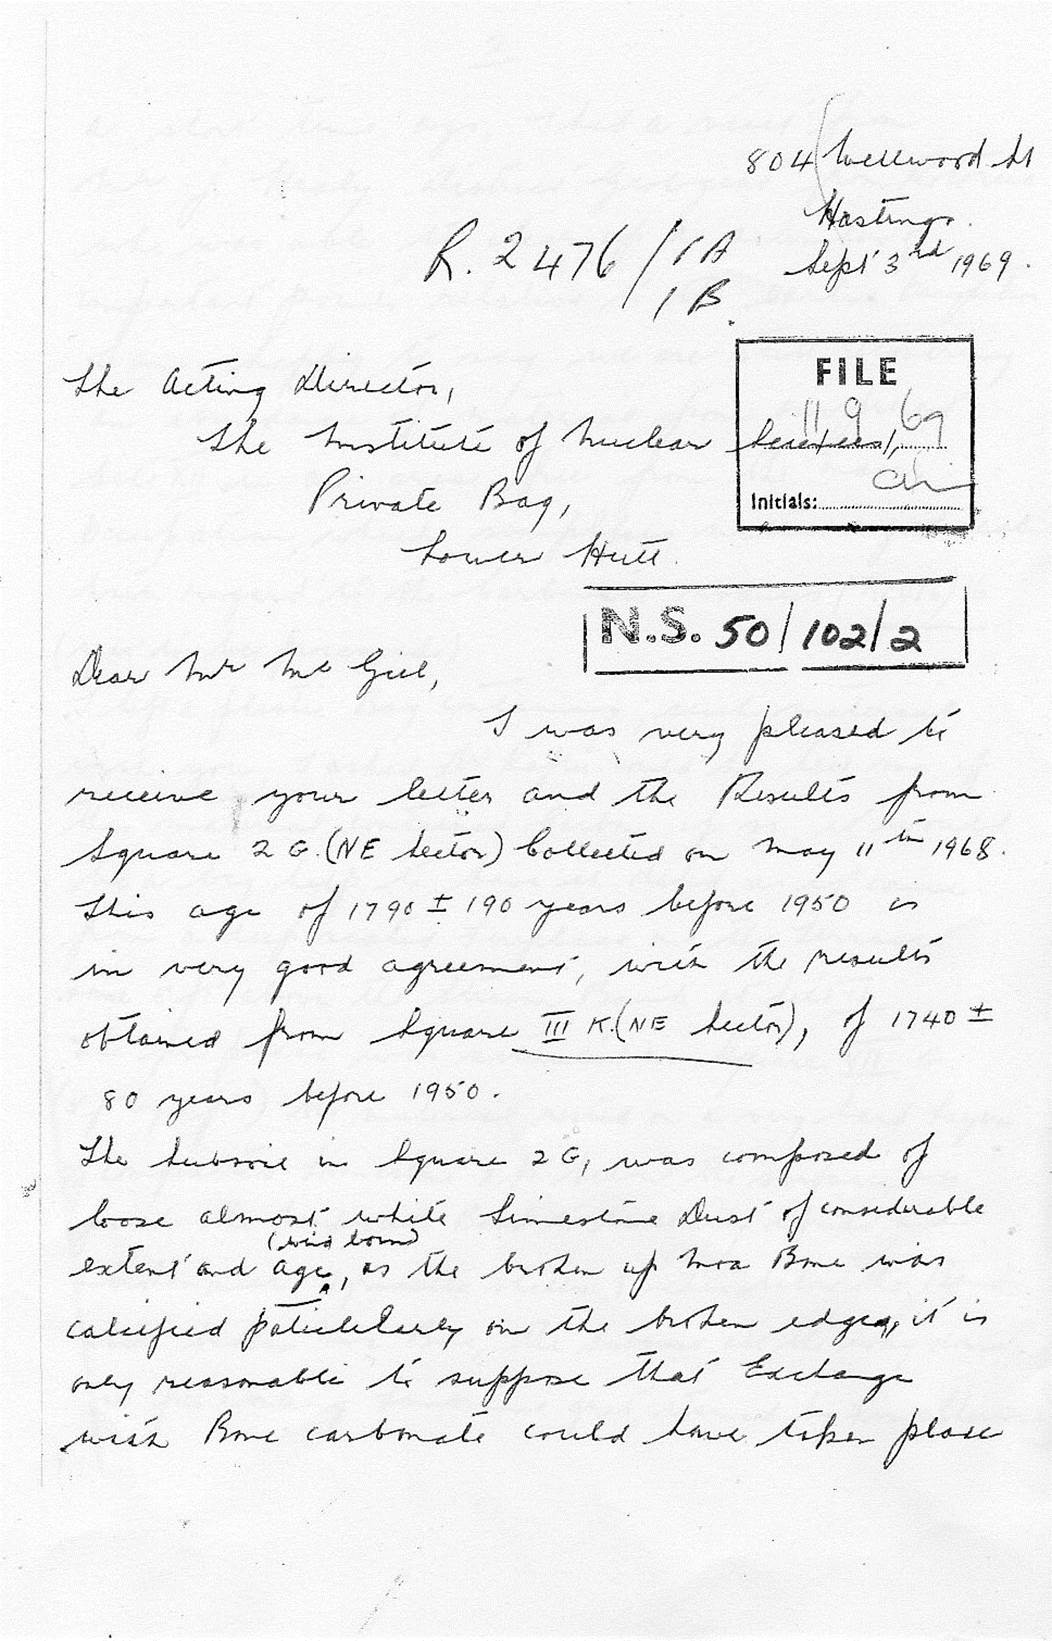 804 Wellwood St
Hastings.
Sept 3rd 1969.
R. 2476/1A
/1B.
FILE
11 9 69
Initials:
The Acting Director,
The Institute of Nuclear Sciences,
Private Bag,
Lower Hutt.
N.S. 50/102/2
Dear Mr Mc Gill,
I was very pleased to
receive your letter and the Results from
Square 2 G. (NE Sector) Collected on May 11th 1968.
This age of 1790 ± 190 years before 1950 is
in very good agreement, with the results
obtained from Square III K. (NE Sector), of 1740 ±
80 years before 1950.
The Subsoil in Square 2 G, was composed of
loose almost white Limestone Dust of considerable
extent and age, as the broken up Moa Bone was
calcified paticlularly on the broken edges, it is
only reasonable to suppose that Exchange
with Bone carbonate could have taken place